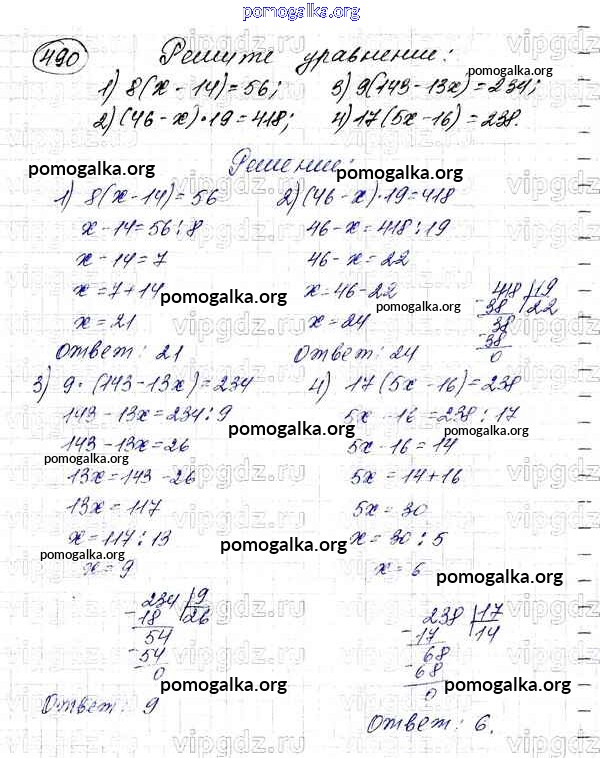 pomogalka.org
490 Решите уравнение:
1) 8(x - 14) = 56; 3) 9(143 - 13x) = 234;
2) (46 - x) · 19 = 418; 4) 17(5x - 16) = 238.
Решение:
1) 8(x - 14) = 56
x - 14 = 56 : 8
x - 14 = 7
x = 7 + 14
x = 21
Ответ: 21
2) (46 - x) · 19 = 418
46 - x = 418 : 19
46 - x = 22
x = 46 - 22
x = 24
418 | 19
- 38 | 22
38
- 38
0
Ответ: 24
3) 9 · (143 - 13x) = 234
143 - 13x = 234 : 9
143 - 13x = 26
13x = 143 - 26
13x = 117
x = 117 : 13
x = 9
234 | 9
- 18 | 26
54
- 54
0
Ответ: 9
4) 17(5x - 16) = 238
5x - 16 = 238 : 17
5x - 16 = 14
5x = 14 + 16
5x = 30
x = 30 : 5
x = 6
238 | 17
- 17 | 14
68
- 68
0
Ответ: 6.
pomogalka.org
pomogalka.org
pomogalka.org
pomogalka.org
pomogalka.org
pomogalka.org
pomogalka.org
pomogalka.org
pomogalka.org
pomogalka.org
pomogalka.org
pomogalka.org
pomogalka.org
vipgdz.ru